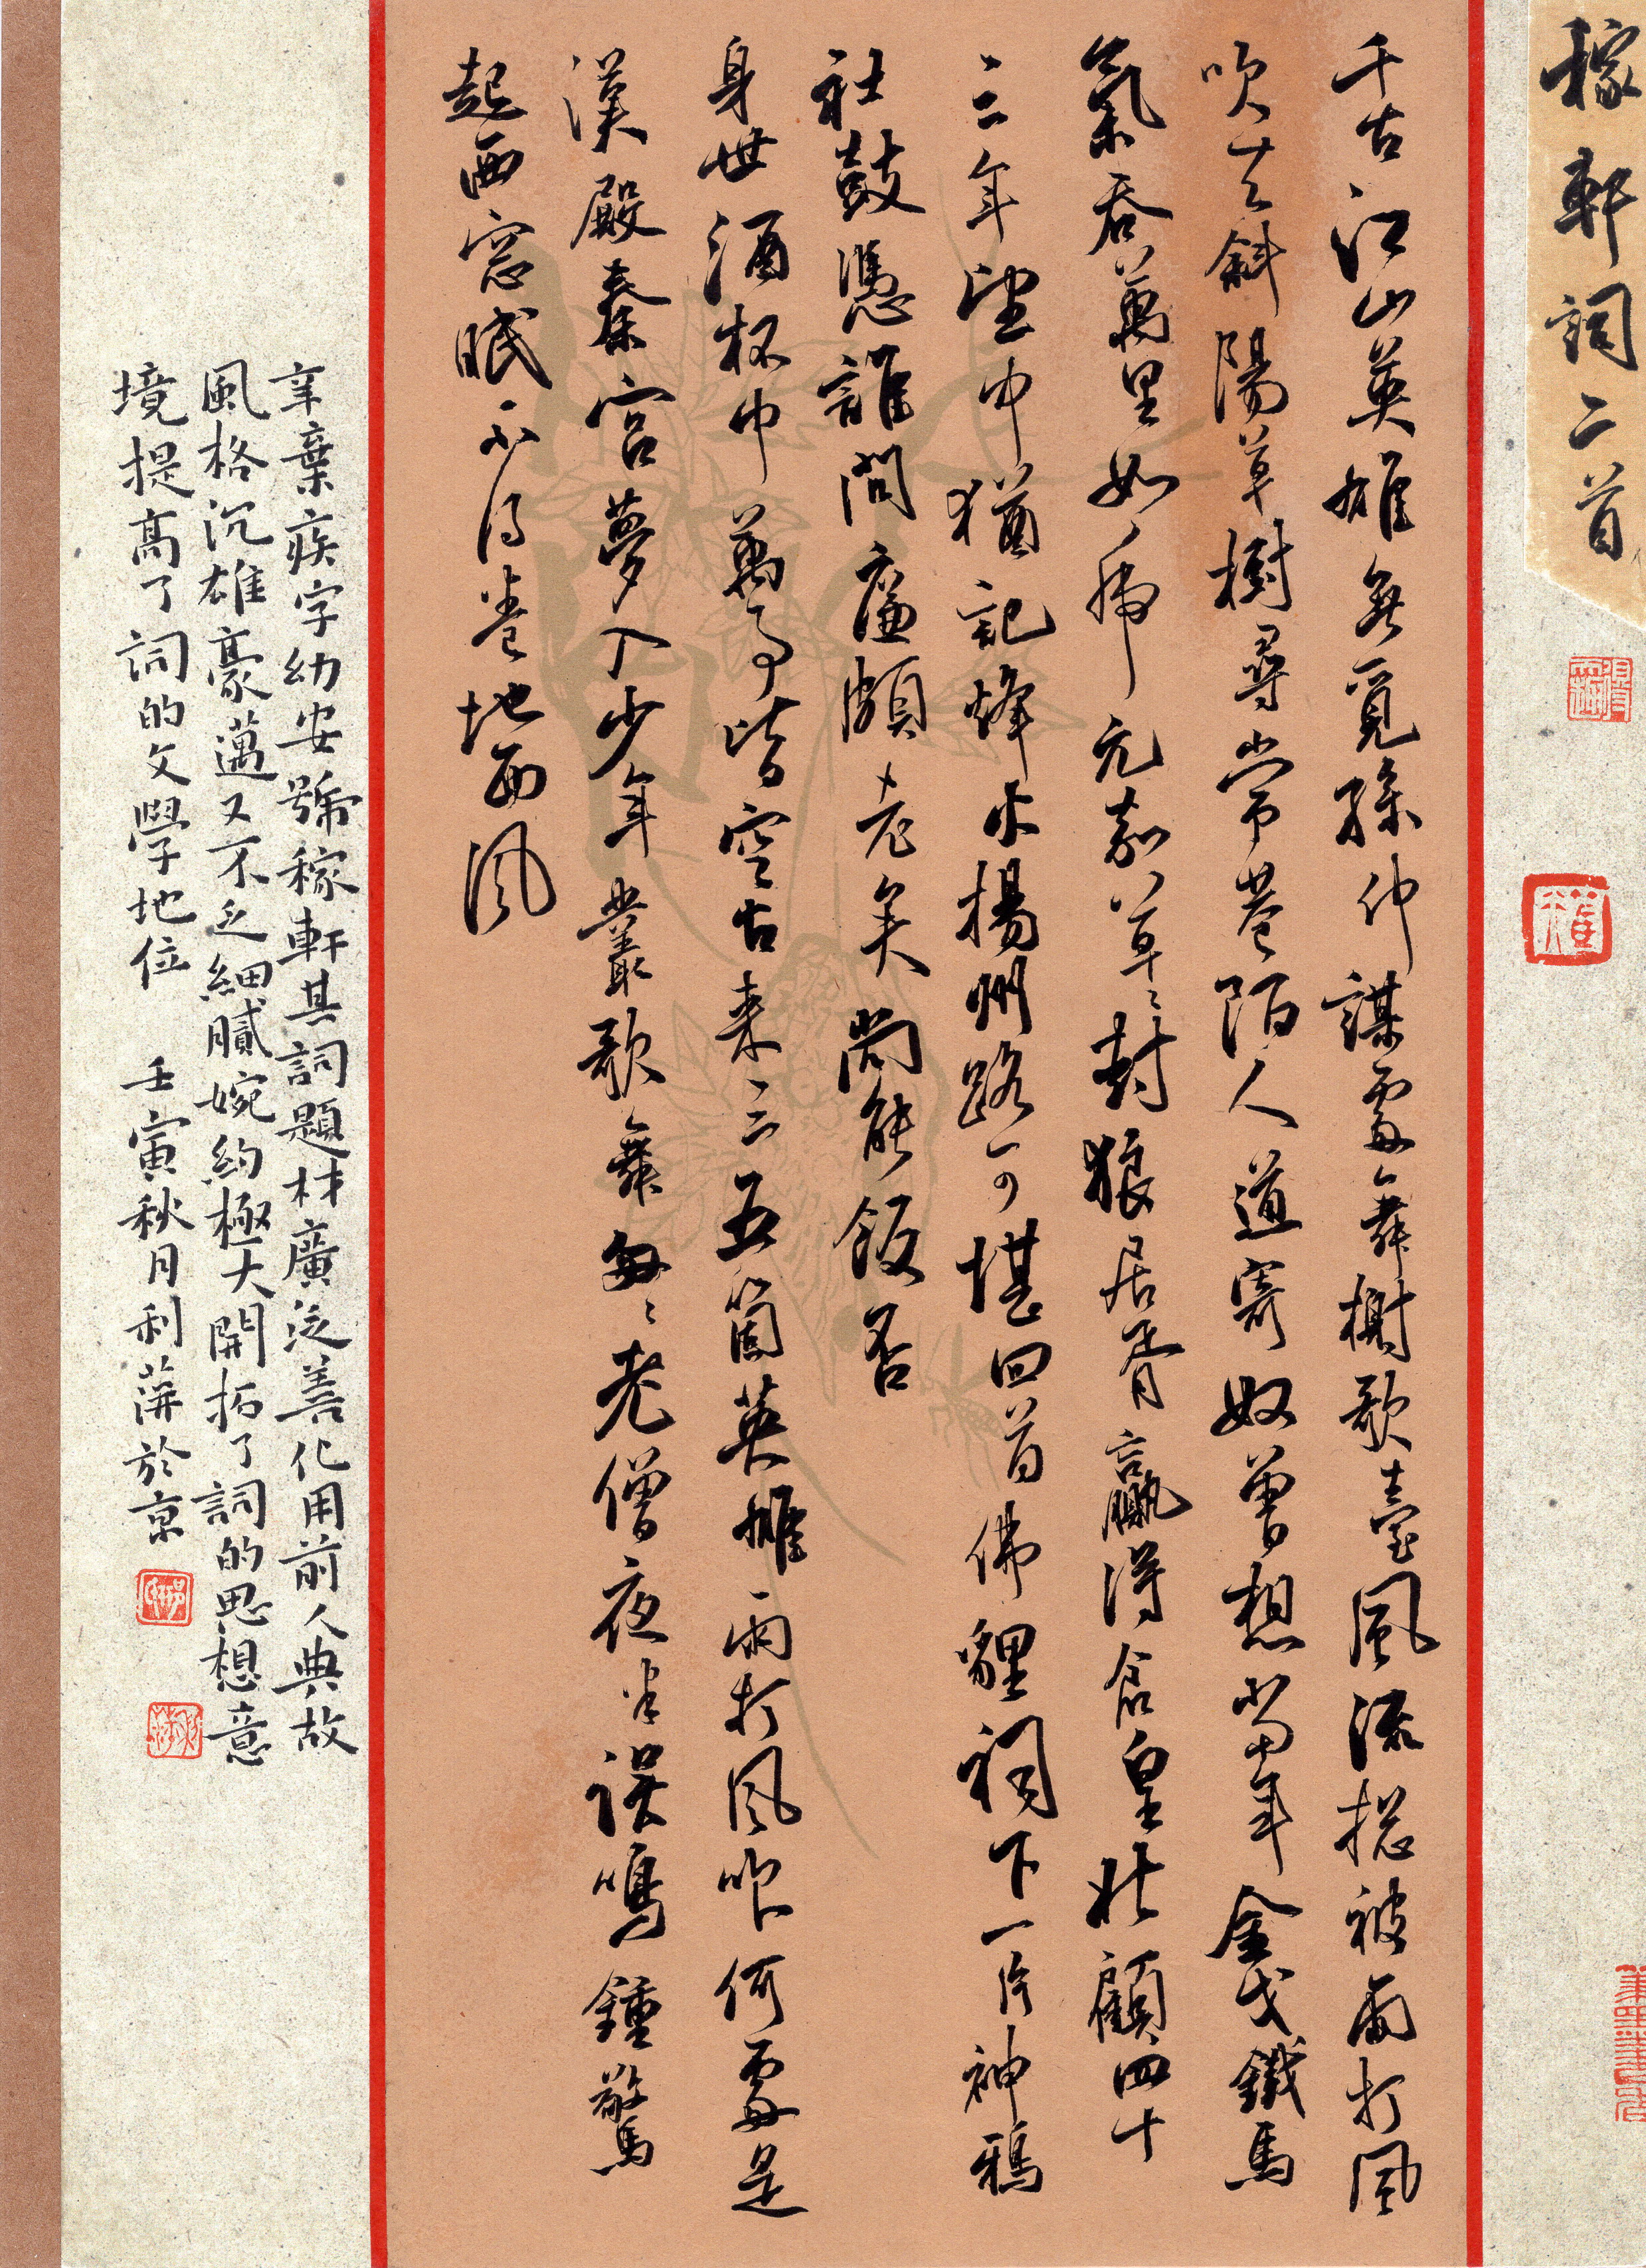 稼軒詞二首
千古江山英雄無覓孫仲謀處舞榭歌臺風流總被雨打風
吹去斜陽草樹尋常巷陌人道寄奴曾想當年金戈鐵馬
氣吞萬里如虎元嘉草草封狼居胥贏得倉皇北顧四十
三年望中猶記烽火揚州路可堪回首佛貍祠下一片神鴉
社鼓憑誰問廉頗老矣尚能飯否
身世酒杯中萬事皆空古來三五箇英雄雨打風吹何處是
漢殿秦宮夢入少年叢歌舞匆匆老僧夜半誤鳴鐘驚
起西窗眠不得卷地西風
辛棄疾字幼安號稼軒其詞題材廣泛善化用前人典故
風格沉雄豪邁又不乏細膩婉約極大開拓了詞的思想意
境提高了詞的文學地位 壬寅秋月利萍於京